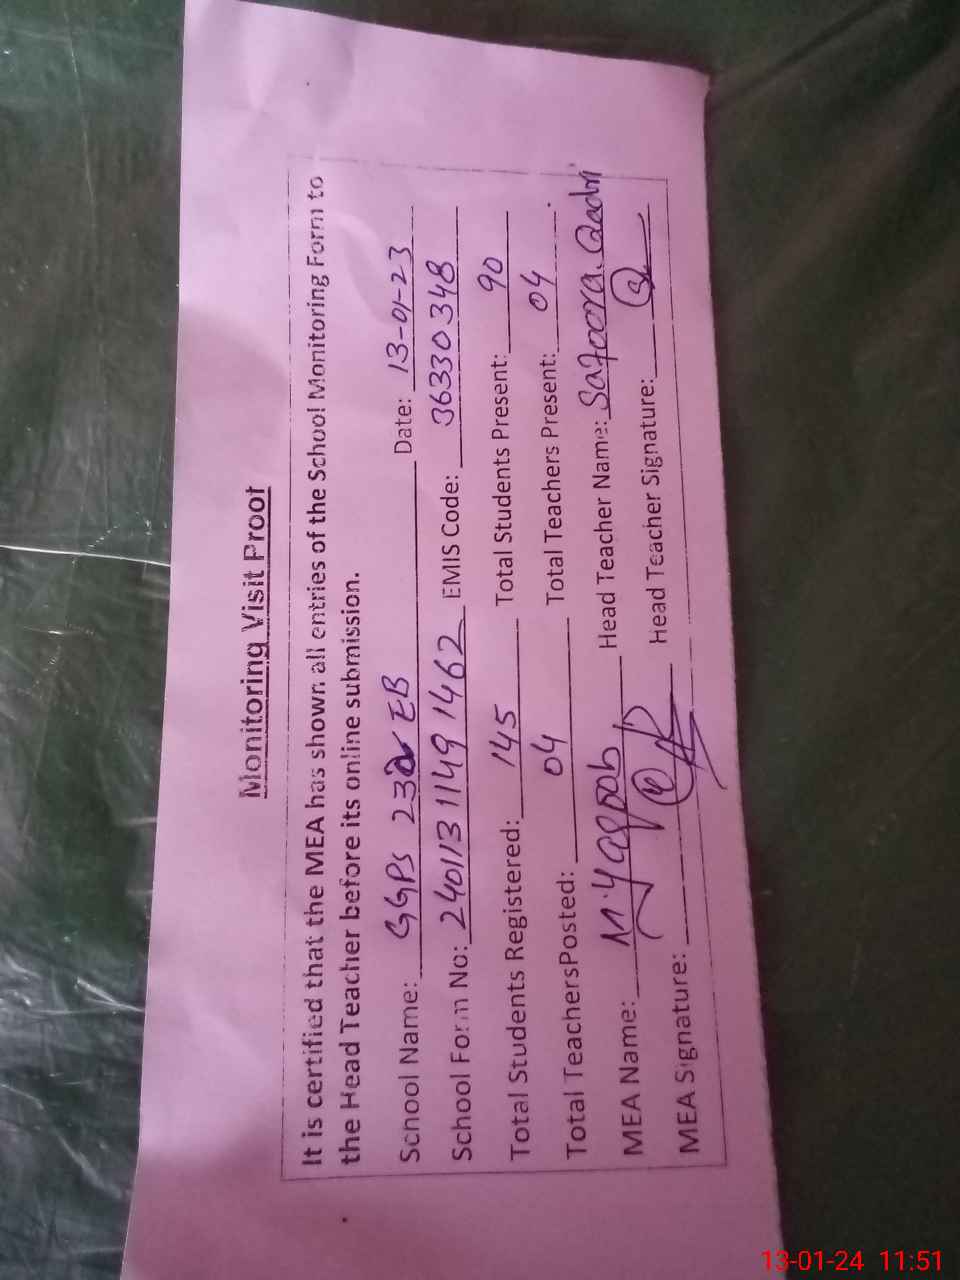 Monitoring Visit Proof
It is certified that the MEA has shown all entries of the School Monitoring Form to
the Head Teacher before its online submission.
School Name: GGPS EB Date: 13-01-23
School Form No: 240113 1149 1462 EMIS Code: 36330348
Total Students Registered: 145 Total Students Present: 90
Total TeachersPosted: 04 Total Teachers Present: 04
MEA Name: M. Yaqoob Head Teacher Name: Safoora Qadri
MEA Signature: Head Teacher Signature:
13-01-24 11:51